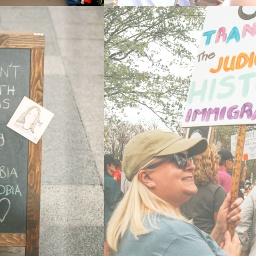 N'T
TH
S
BIA
OBIA
TRAN
The
JUDIC
HIST
IMMIGRA